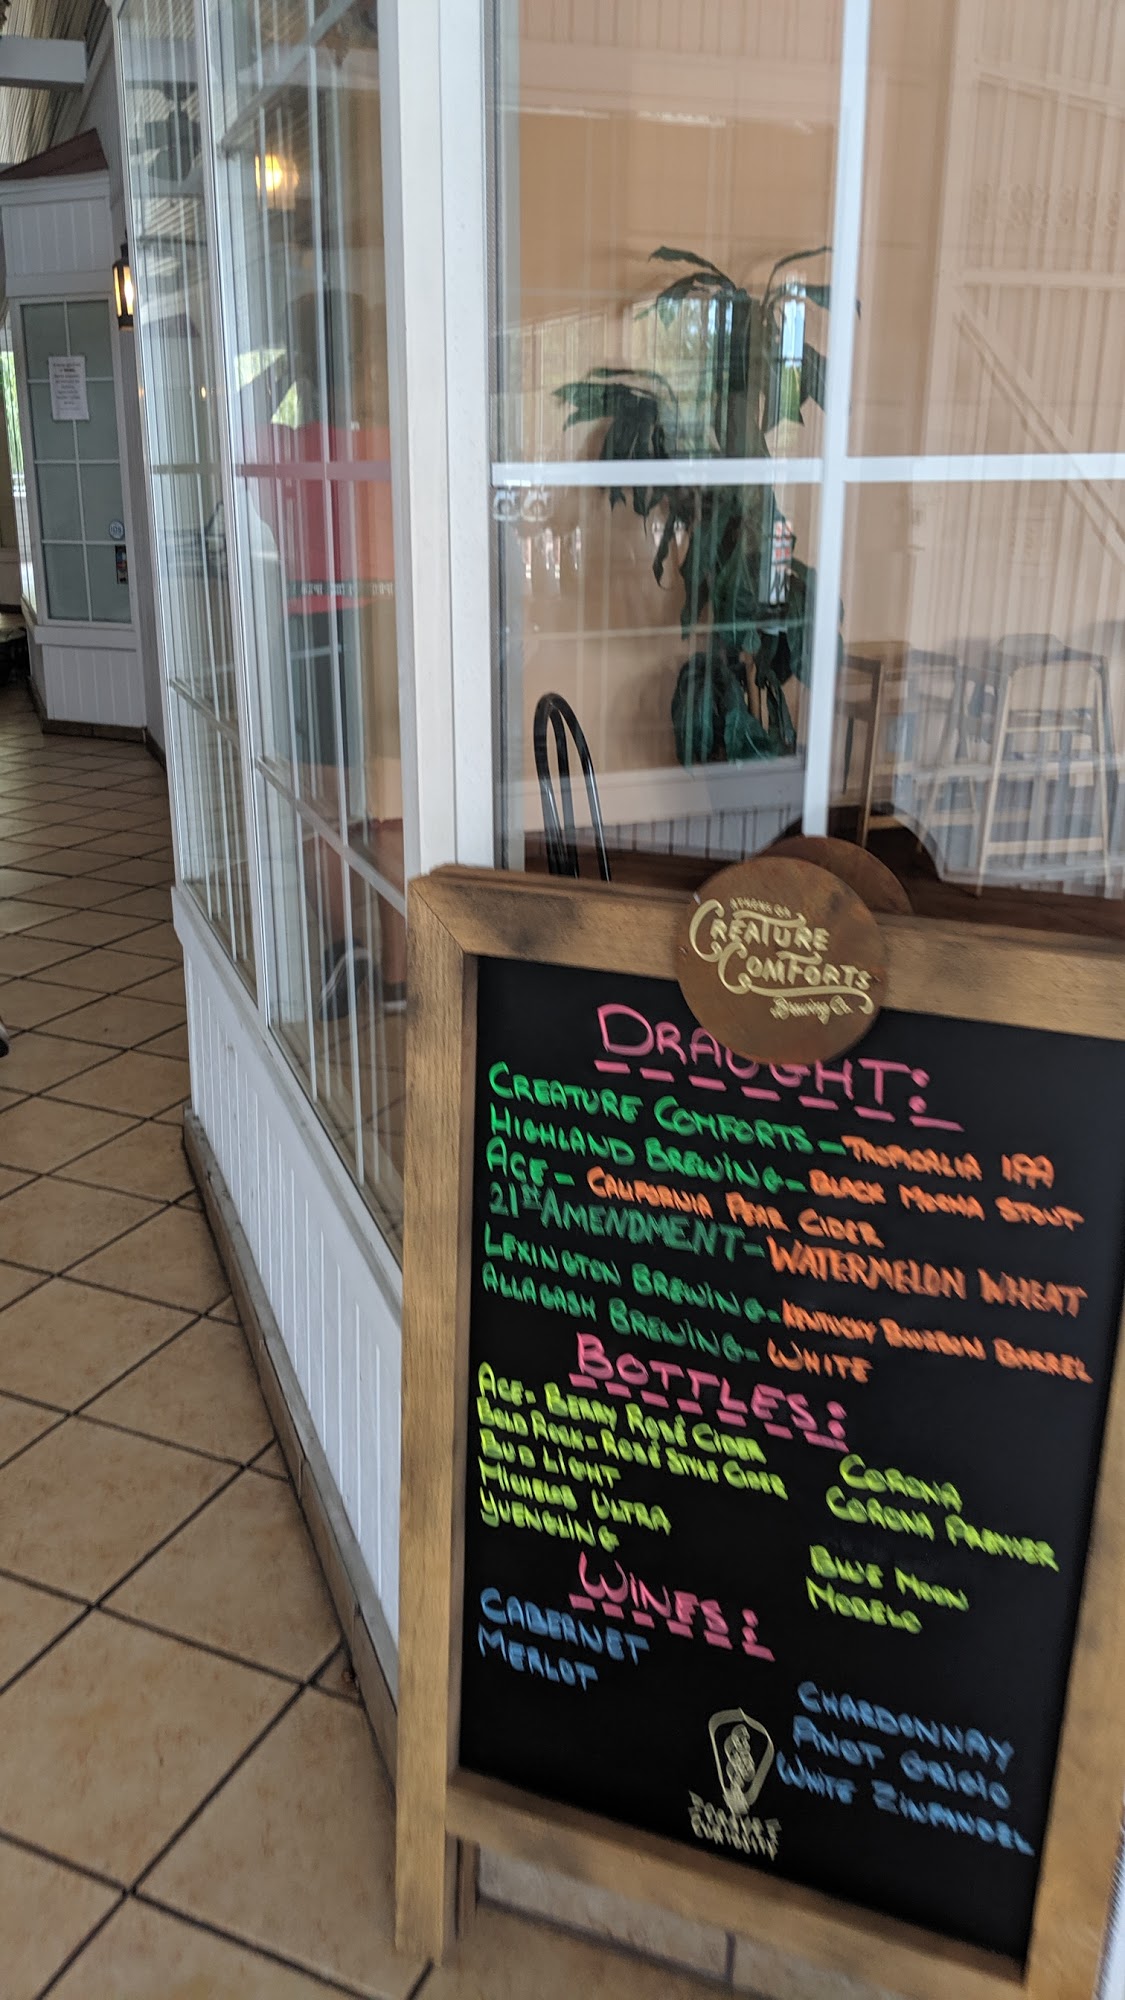 ATHENS GA
CREATURE
COMFORTS
Brewing Co.
DRAUGHT:
CREATURE COMFORTS - TROPICALIA IPA
HIGHLAND BREWING - BLACK MOCHA STOUT
ACE - CALIFORNIA PEAR CIDER
21ST AMENDMENT - WATERMELON WHEAT
LEXINGTON BREWING - KENTUCKY BOURBON BARREL
ALLAGASH BREWING - WHITE
BOTTLES:
ACE - BERRY ROSÉ CIDER
BOLD ROCK - ROSÉ STYLE CIDER
BUD LIGHT
MICHELOB ULTRA
YUENGLING
CORONA
CORONA PREMIER
BLUE MOON
MODELO
WINES:
CABERNET
MERLOT
CHARDONNAY
PINOT GRIGIO
WHITE ZINFANDEL
CURIOSITY